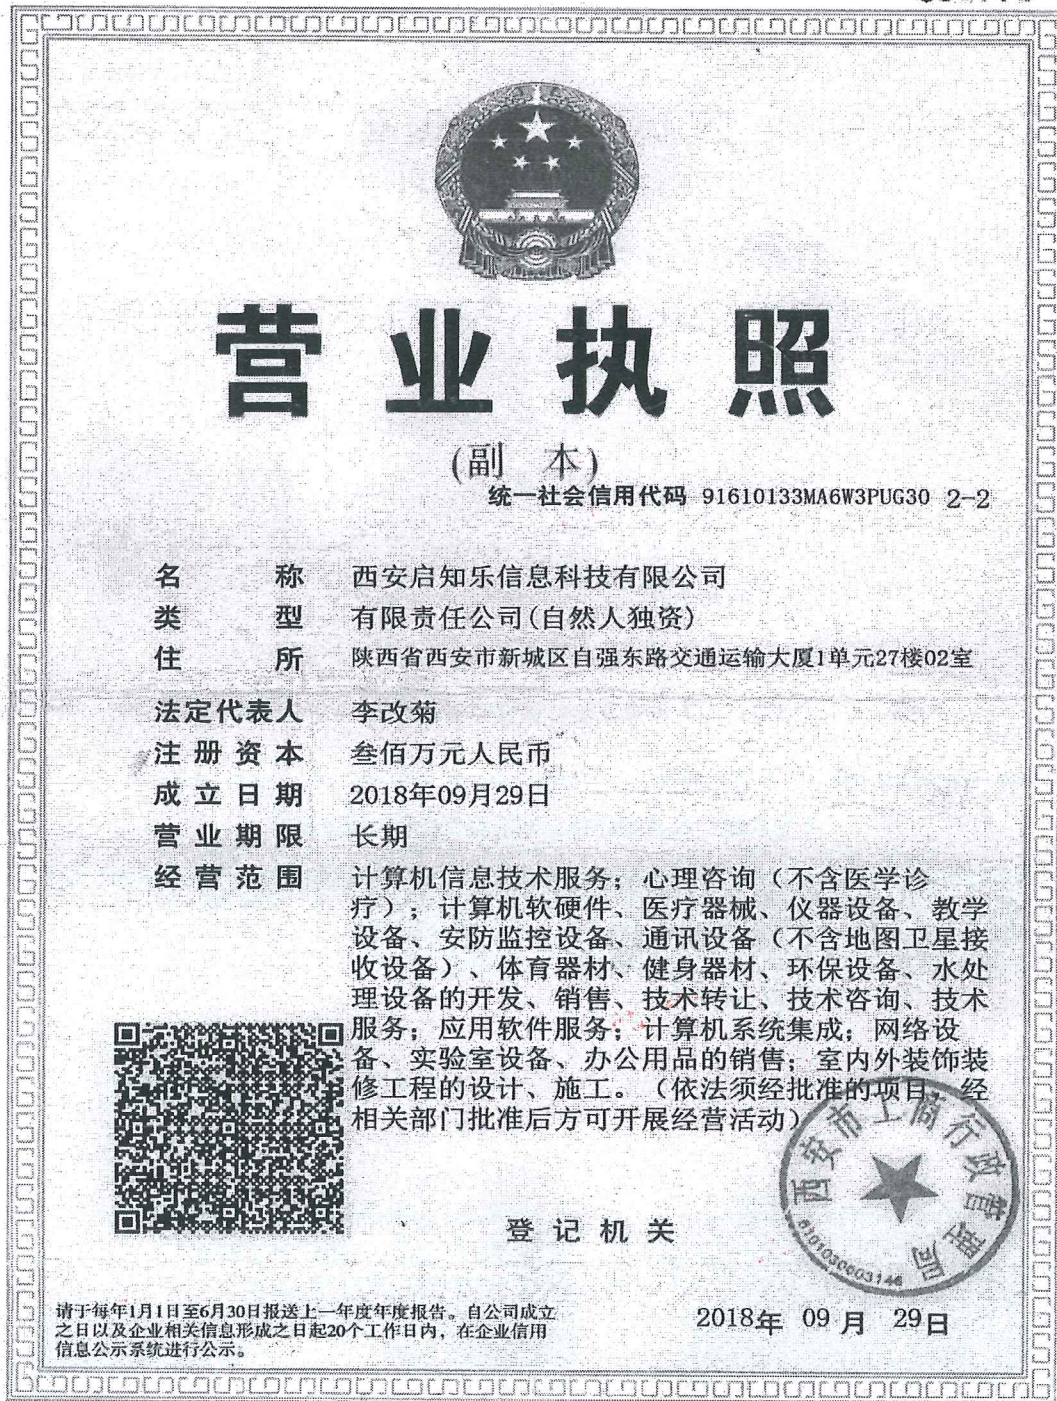 营业执照
(副 本)
统一社会信用代码 91610133MA6W3PUG30 2-2
名 称 西安启知乐信息科技有限公司
类 型 有限责任公司(自然人独资)
住 所 陕西省西安市新城区自强东路交通运输大厦1单元27楼02室
法定代表人 李改菊
注册资本 叁佰万元人民币
成立日期 2018年09月29日
营业期限 长期
经营范围 计算机信息技术服务；心理咨询（不含医学诊
疗）；计算机软硬件、医疗器械、仪器设备、教学
设备、安防监控设备、通讯设备（不含地图卫星接
收设备）、体育器材、健身器材、环保设备、水处
理设备的开发、销售、技术转让、技术咨询、技术
服务；应用软件服务；计算机系统集成；网络设
备、实验室设备、办公用品的销售；室内外装饰装
修工程的设计、施工。（依法须经批准的项目，经
相关部门批准后方可开展经营活动）
西安市工商行政管理局
6101030003146
登记机关
2018年 09月 29日
请于每年1月1日至6月30日报送上一年度年度报告。自公司成立
之日以及企业相关信息形成之日起20个工作日内，在企业信用
信息公示系统进行公示。